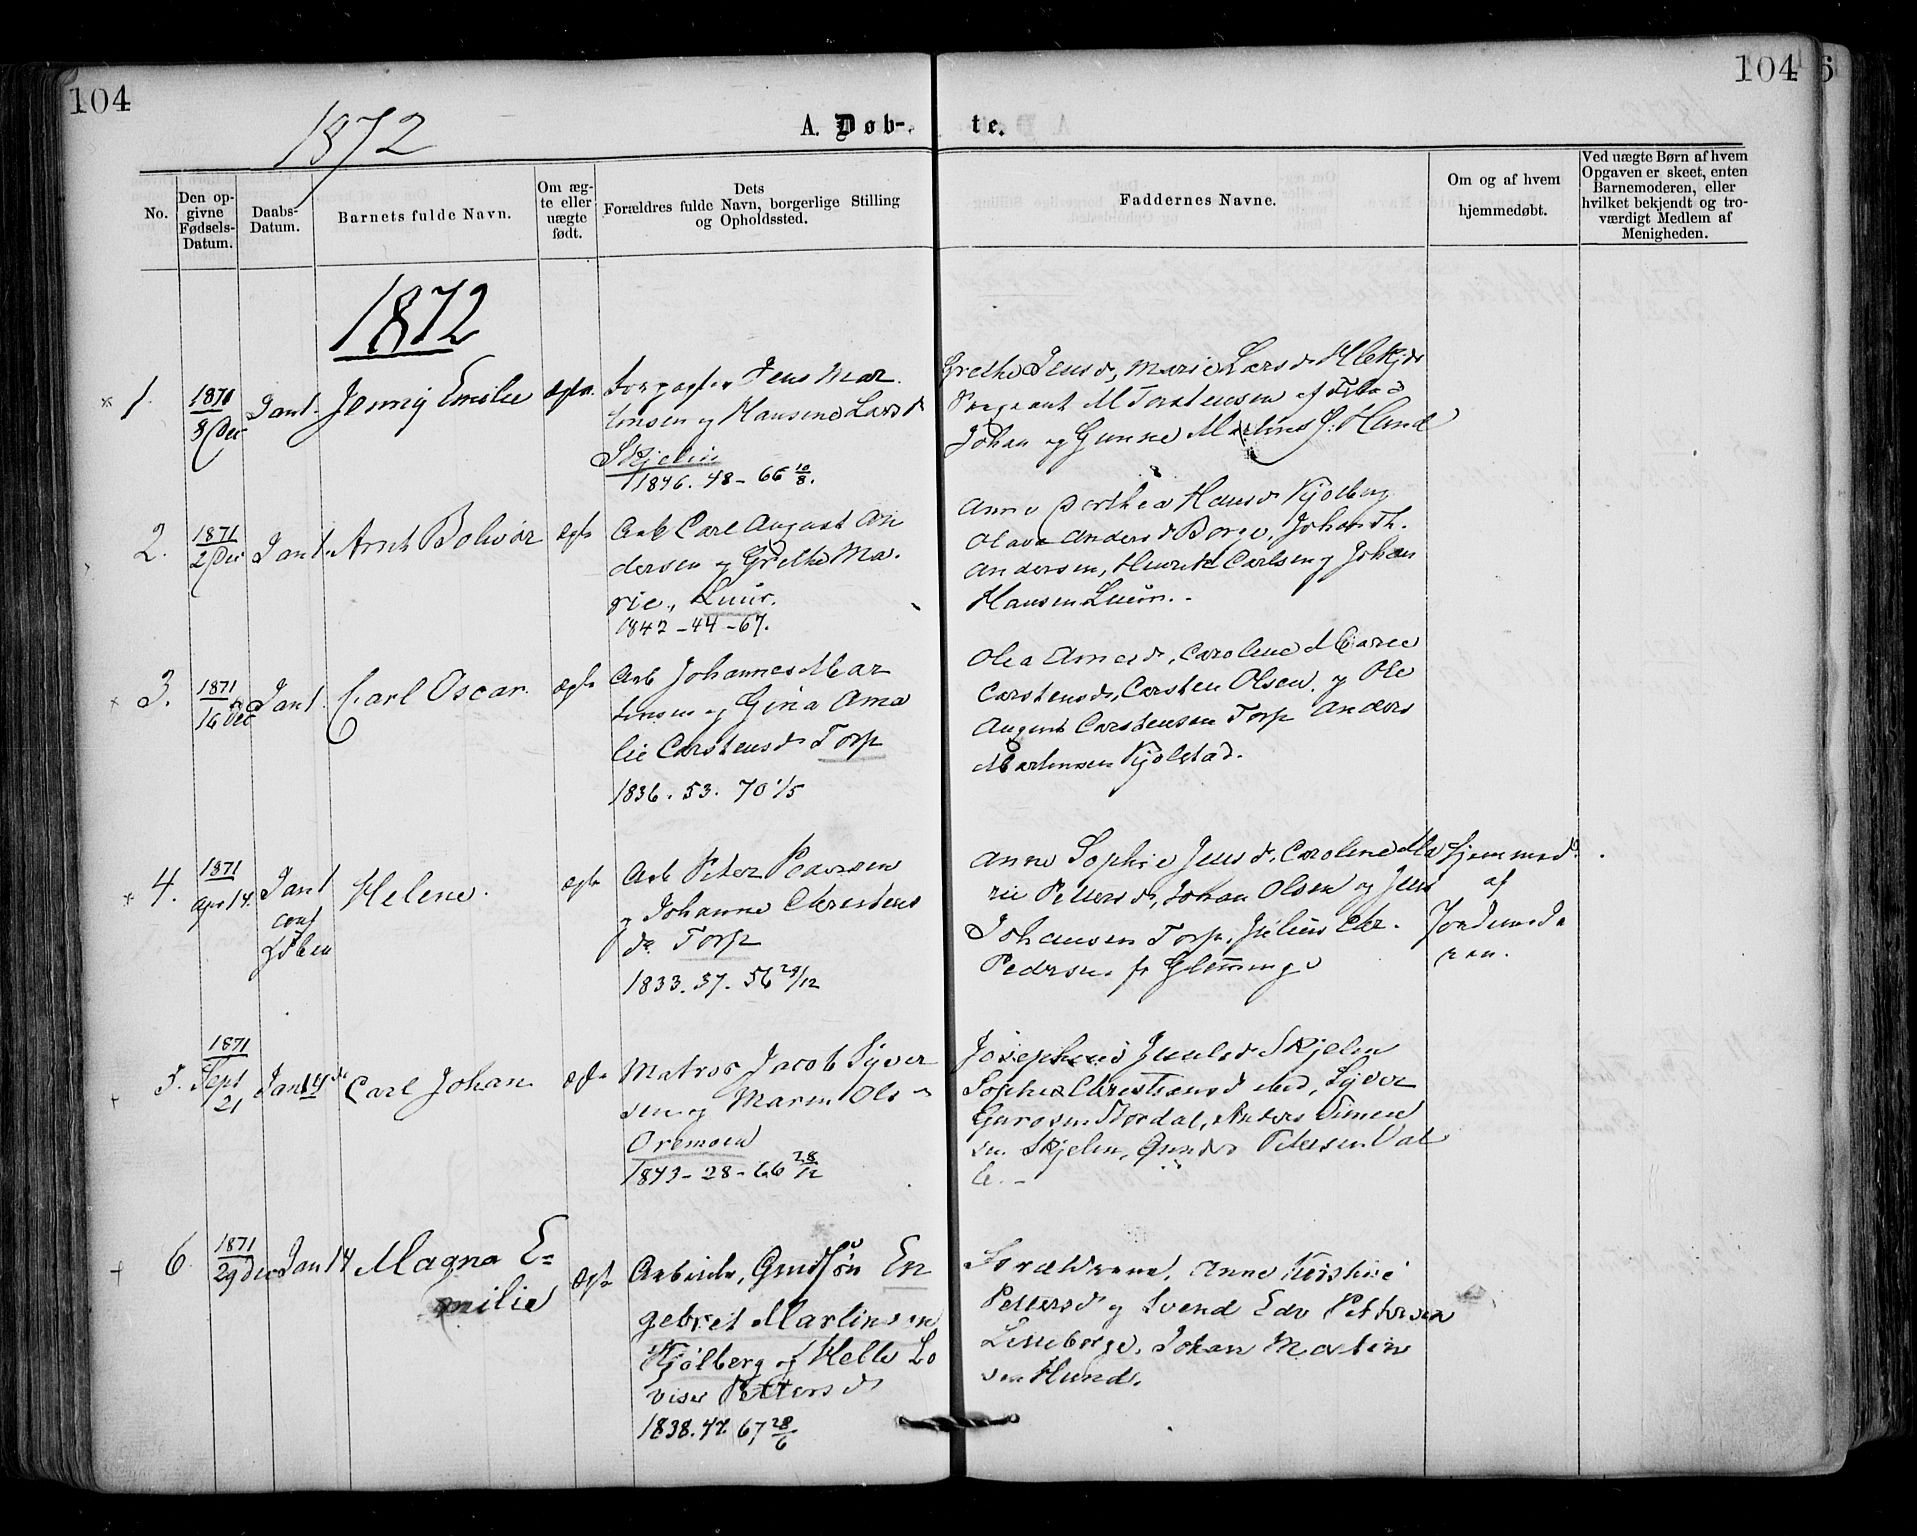 104
104
6
1872
A. Døb-
te.
No.
Den op-
givne
Fødsels-
Datum.
Daabs-
Datum.
Barnets fulde Navn.
Om æg-
te eller
uægte
født.
Dets
Forældres fulde Navn, borgerlige Stilling
og Opholdssted.
Faddernes Navne.
Om og af hvem
hjemmedøbt.
Ved uægte Børn af hvem
Opgaven er skeet, enten
Barnemoderen, eller
hvilket bekjendt og tro-
værdigt Medlem af
Menigheden.
1872
1.
1871
8 Dec
Jan 1.
Jenny Emilie
ægte
Forpagter Jens Mar
tinsen og Hansine Larsd
Skjelin
1846. 48 - 66 10/8.
Grethe Jensd, Marie Larsd
Sergeant M Torstensen af
Johan og Gunne Martins Hund
2.
1871
2 Dec
Jan 1.
Arnt Bolivar
ægte
Arb Carl August An
dersen og Grethe Ma-
rie, Luur.
1842 - 44 - 67.
Anne Dorthea Hansd Kjølberg
Olava Andersd Borge, Johan Th.
Andersen, Henrik Carlsen og Johan
Hansen Luur.
3.
1871
16 Dec
Jan 1.
Carl Oscar
ægte
Arb Johannes Mar
tinsen og Gina Ama
lie Carstensd Torp
1836. 53. 70 1/5
Olea Arnesd, Caroline Marie
Carstensd, Carsten Olsen, og Ole
August Carstensen Torp Anders
Martinsen Kjølstad.
4.
1871
Apr 14.
Jan 1
conf
Daben
Helene.
ægte
Arb Peter Pedersen
og Johanne Christens
d. Torp
1833. 37. 56 29/12
Anne Sophie Jensd, Caroline Ma
rie Pettersd, Johan Olsen og Jens
Johansen Torp, Julius Chr.
Pedersen fr Glemminge
Hjemmed.
af
Jordemode
ren.
5.
1871
Sept
21
Jan 14de
Carl Johan
ægte
Matros Jacob Syver
sen og Maren Ols
Oremoen
1843 - 28 - 66 28/12
Josephine Jensd Skjelin
Sophie Christiansd ibid, Syver
Gurosen Nordal, Anders Simen
sen Skjelin, Gunder Petersen Dal
e.
6.
1871
29 Dec
Jan 14
Magna E=
milie
ægte
Arbeider, Gudtjøn En
gebret Martinsen
Kjølberg og Helle Lo
vise Pettersd
1838. 47. 67 28/6
Forældrene, Anne Kirstine
Pettersd og Svend Edv Pettersen
Lilleborge, Johan Martin
sen Hund.